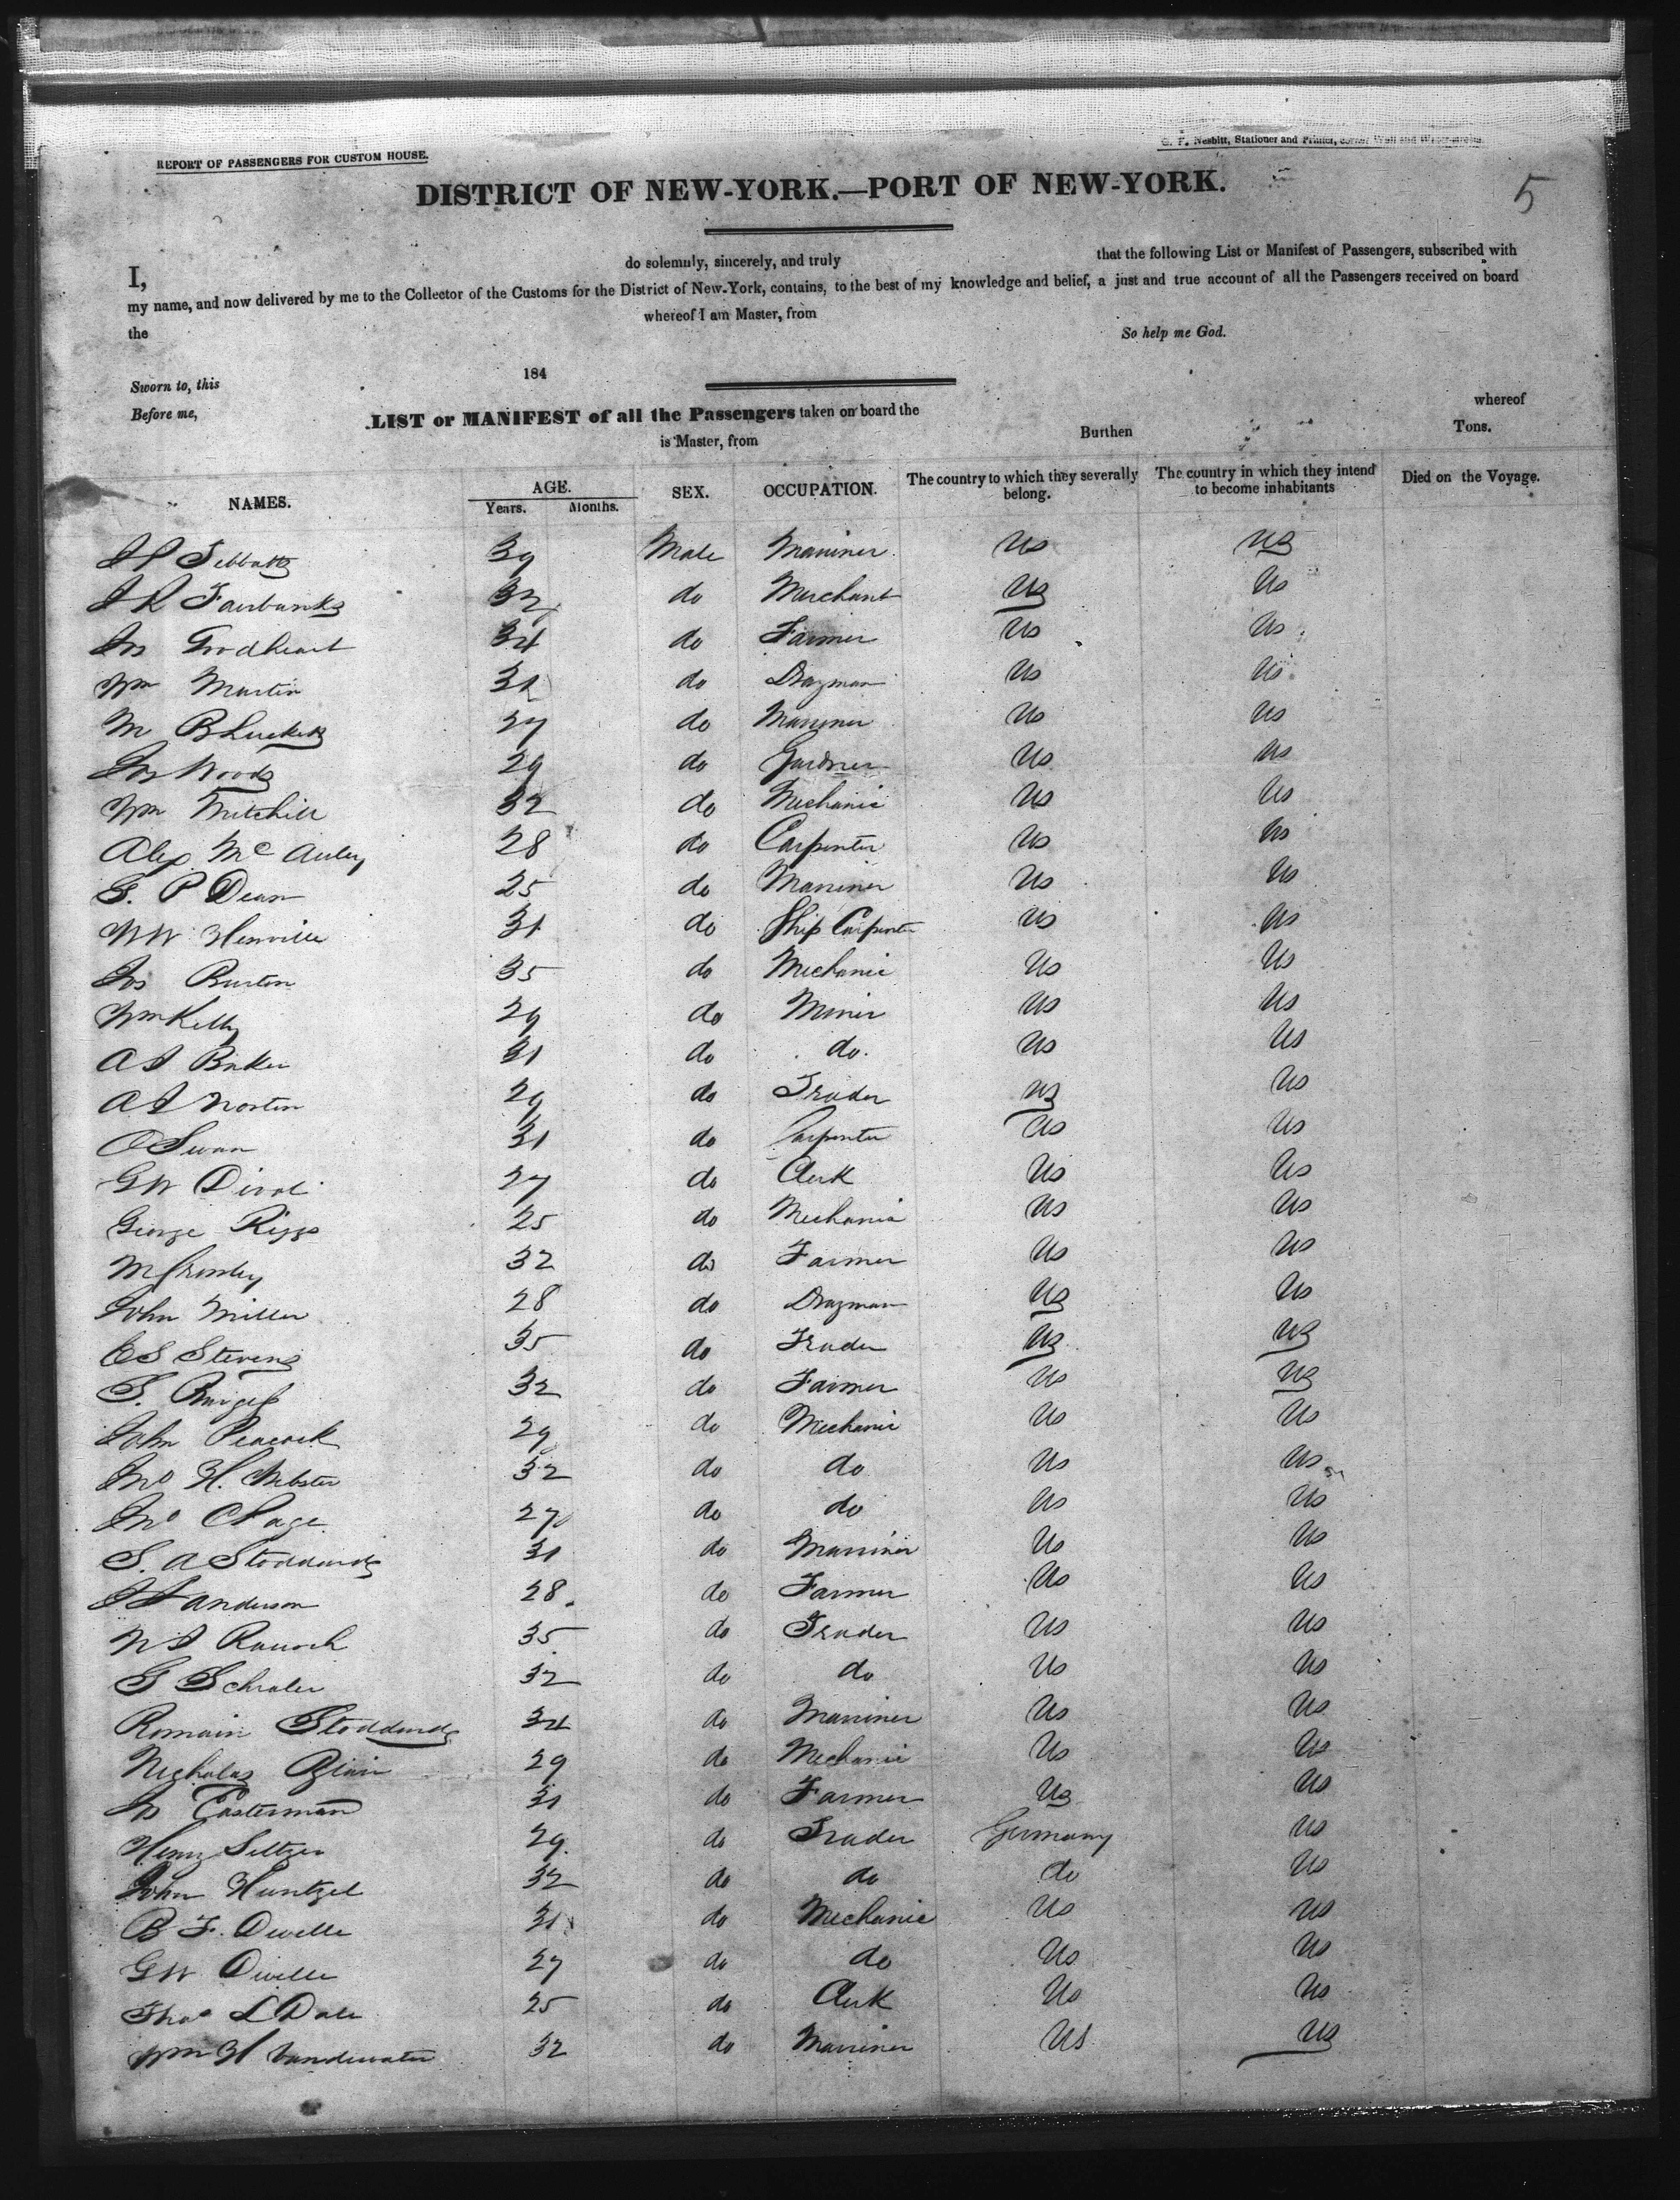 REPORT OF PASSENGERS FOR CUSTOM HOUSE.
G. F. Nesbitt, Stationer and Printer, corner Wall and Water-streets.
DISTRICT OF NEW-YORK.—PORT OF NEW-YORK.
5
I, do solemnly, sincerely, and truly that the following List or Manifest of Passengers, subscribed with
my name, and now delivered by me to the Collector of the Customs for the District of New-York, contains, to the best of my knowledge and belief, a just and true account of all the Passengers received on board
the whereof I am Master, from
So help me God.
Sworn to, this 184
Before me,
LIST or MANIFEST of all the Passengers taken on board the whereof
is Master, from Burthen Tons.
NAMES. AGE. Years. Months. SEX. OCCUPATION. The country to which they severally belong. The country in which they intend to become inhabitants Died on the Voyage.
39 Male Mariner Us Us
J R Fairbanks 32 do Merchant Us Us
Jos Goodheart 34 do Farmer Us Us
Wm Martin 31 do Drayman Us Us
M B Lucketts 27 do Mariner Us Us
Jos Woods 29 do Gardner Us Us
Wm Mitchill 32 do Mechanic Us Us
Alex Mc Auley 28 do Carpenter Us Us
G. P Dean 25 do Mariner Us Us
W W Henville 31 do Ship Carpenter Us Us
Jos Burton 35 do Mechanic Us Us
Wm Kelly 29 do Miner Us Us
A J Baker 31 do do. Us Us
A J Norton 29 do Trader Us Us
O Swan 31 do Carpenter Us Us
G W 27 do Clerk Us Us
George Riggs 25 do Mechanic Us Us
M Crosby 32 do Farmer Us Us
John Miller 28 do Drayman Us Us
E S Stevens 35 do Trader Us Us
S. Burgess 32 do Farmer Us Us
John Peacock 29 do Mechanic Us Us
Jno H. Webster 32 do do Us Us
Jno C Page 27 do do Us Us
S. A Stoddards 31 do Marriner Us Us
J F Anderson 28. do Farmer Us Us
N J 35 do Trader Us Us
G Schraler 32 do do Us Us
Romain Stoddards 34 do Marriner Us Us
Nicholas Blair 29 do Mechanic Us Us
Jos Easterman 31 do Farmer Us Us
Henry Seltzer 29. do Trader Germany Us
John Huntzel 32 do do do Us
B F. Divelle 31 do Mechanic Us Us
G W Divelle 27 do do Us Us
Thos L Dale 25 do Clerk Us Us
Wm H Vandewater 32 do Marriner US Us